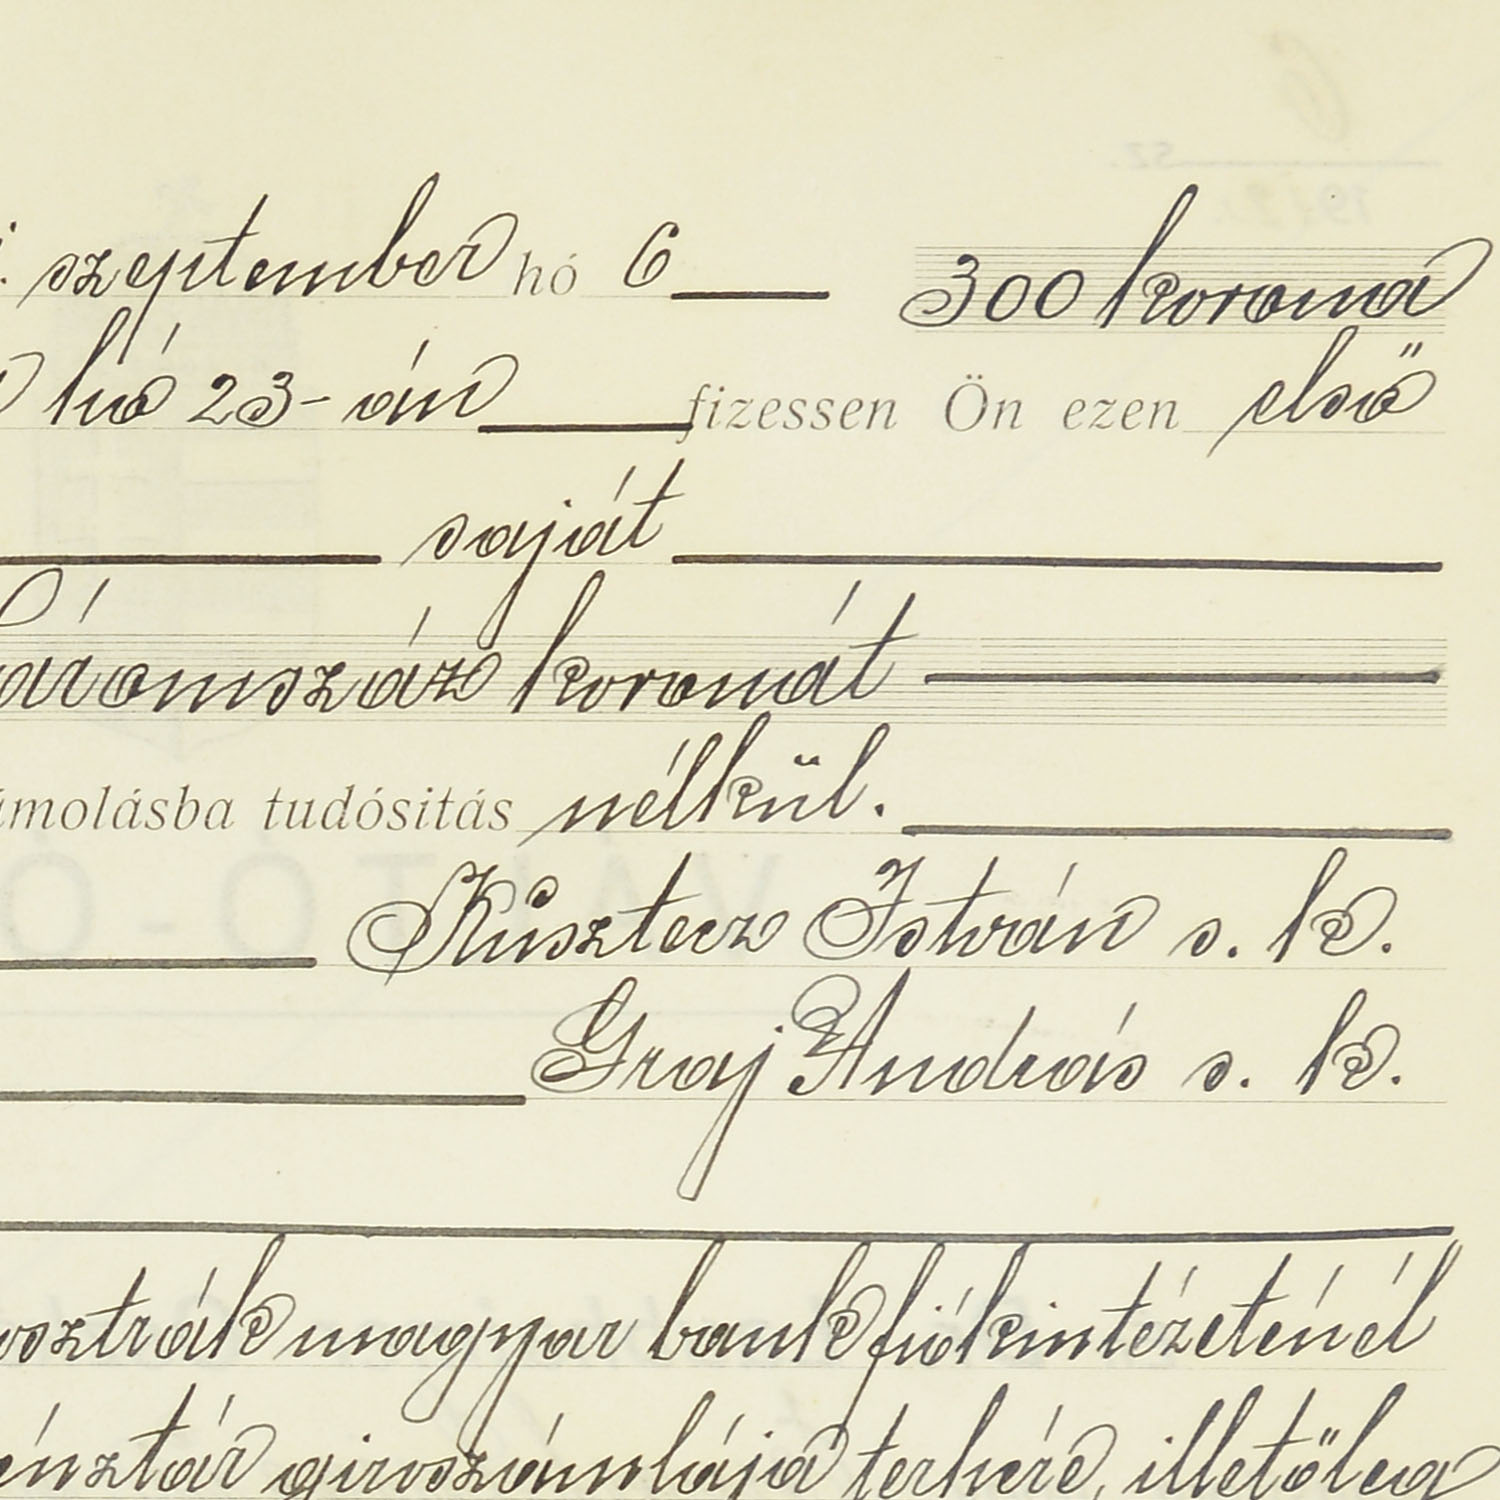 szeptember hó 6 300 korona
hó 23-án fizessen Ön ezen első
saját
áromszáz koronát
ámolásba tudósitás nélkül.
Kusztecz István s. k.
Graj András s. k.
osztrák magyar bank fiókintézeténél
énztár giroszámlája terhére, illetőleg